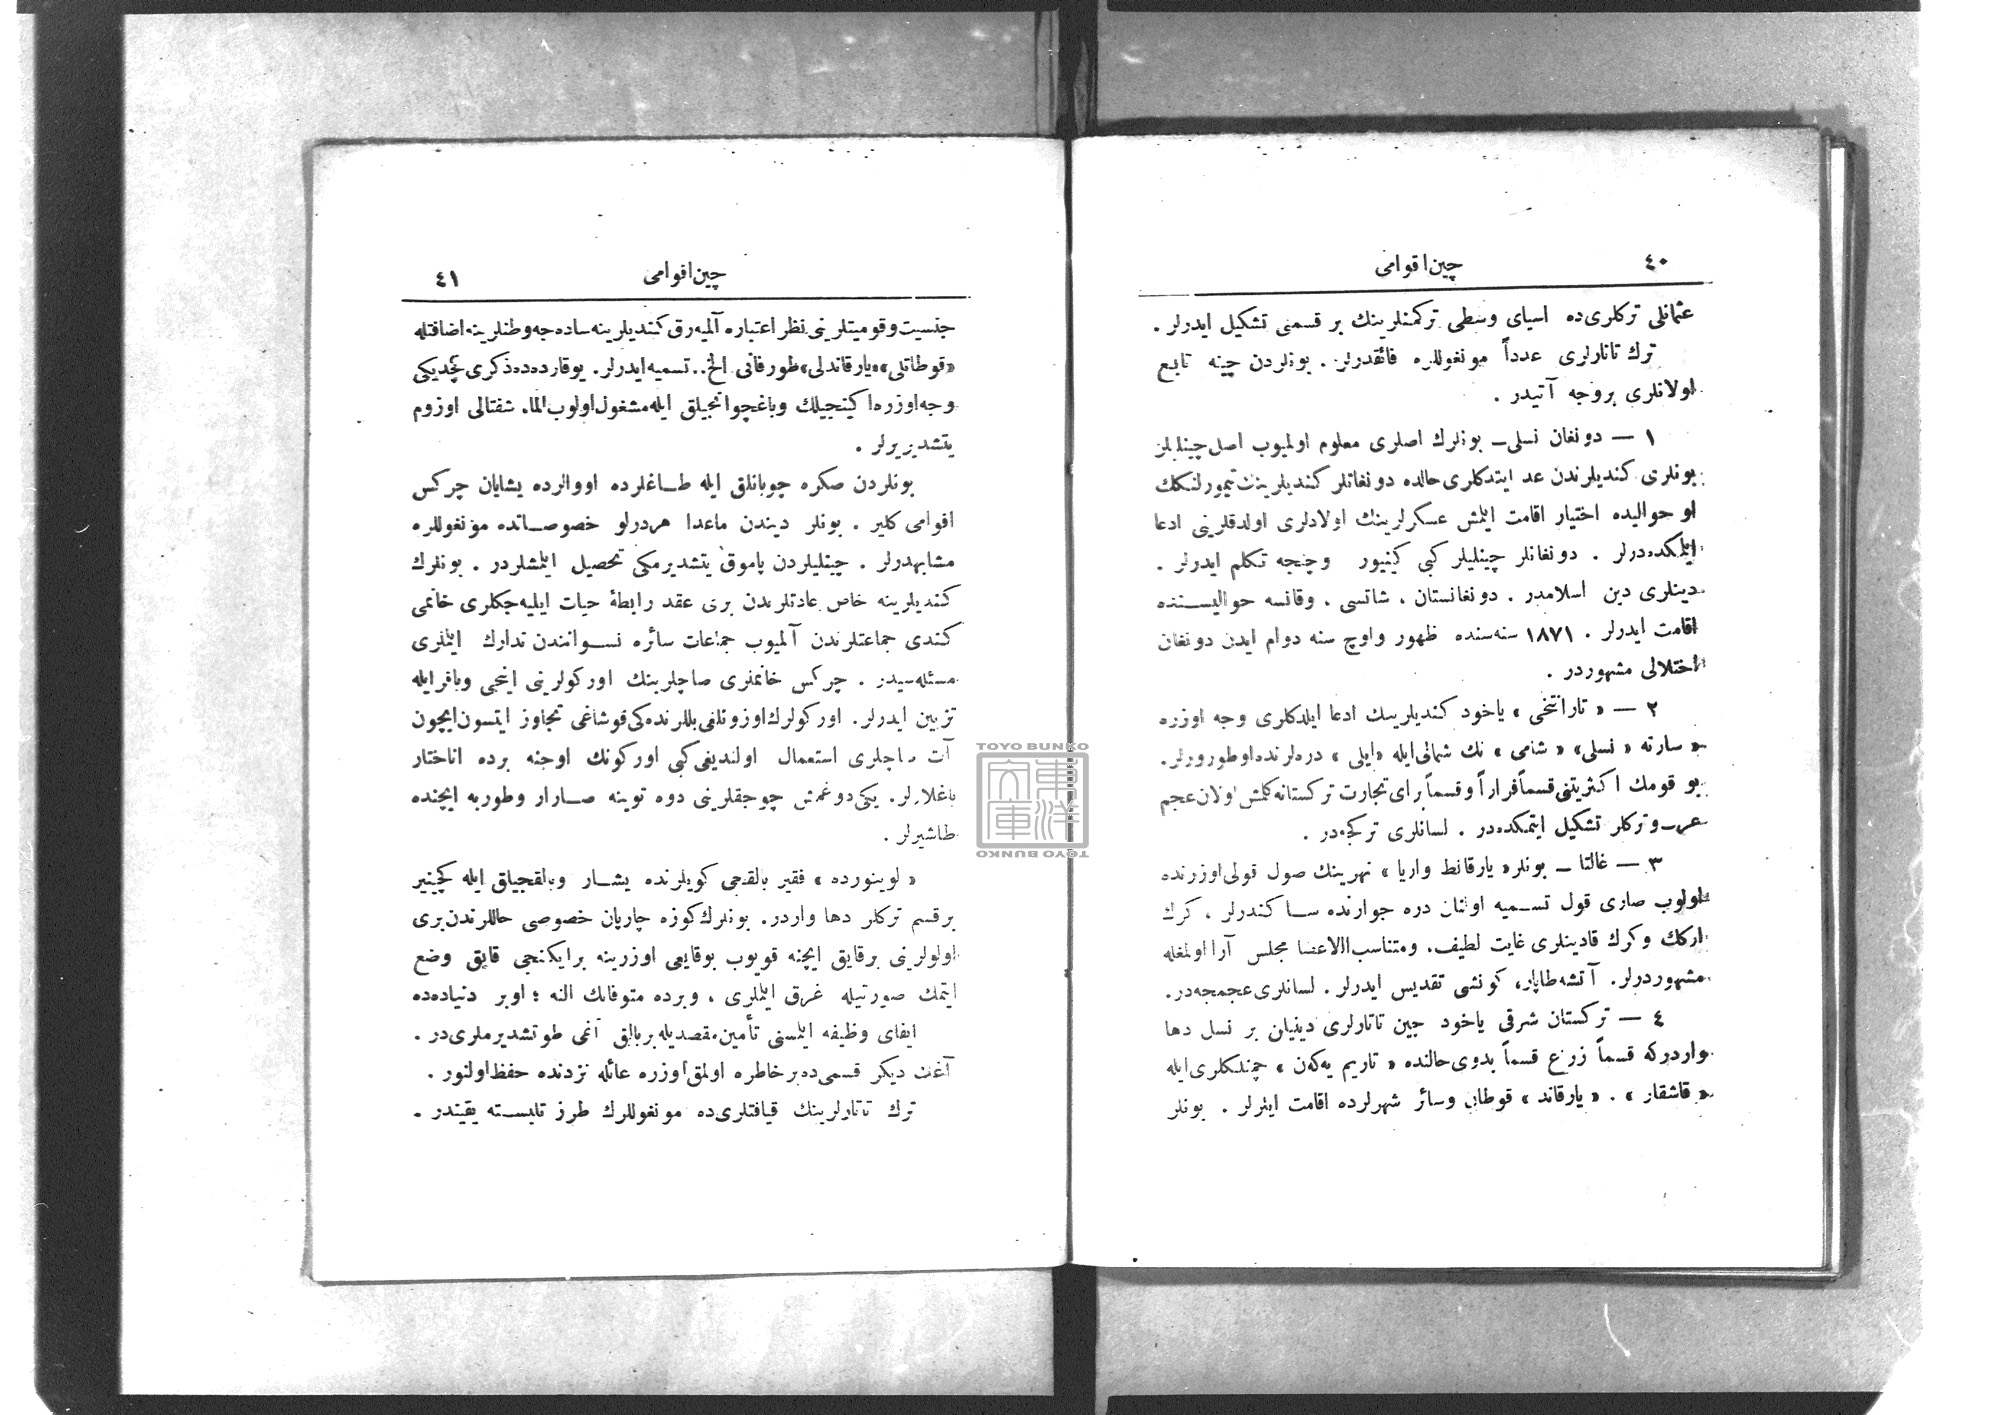 ٤٠
چین اقوامی
عثمانلی ترکلری‌ده اسیای وسطی ترکمنلرینك بر قسمنی تشکیل ایدرلر .
ترك تاتارلری عدداً مونغوللره فائقدرلر . بونلردن چینه تابع
اولانلری بروجه آتیدر .
١ — دونغان نسلی — بونلرك اصلری معلوم اولمیوب اصل چینلیلر
بونلری کندیلرندن عد ایتدکلری حالده دونغانلر کندیلرینك تیمورلنکك
او حوالیده اختیار اقامت ایلمش عسکرلرینك اولادلری اولدقلرینی ادعا
ایلمکده‌درلر . دونغانلر چینلیلر کبی کینیور وچینجه تکلم ایدرلر .
دینلری دین اسلامدر . دونغانستان ، شانسی ، وقانسه حوالیسنده
اقامت ایدرلر . ١٨٧١ سنه‌سنده ظهور واوچ سنه دوام ایدن دونغان
اختلالی مشهوردر .
٢ — « تارانتخی » یاخود کندیلرینك ادعا ایلدکلری وجه اوزره
« سارته « نسلی» « شامی » نك شمالی ایله «ایلی » دره‌لرنده اوطورورلر.
بو قومك اکثریتنی قسماً فراراً وقسماً برای تجارت ترکستانه کلمش اولان عجم
عرب وترکلر تشکیل ایتمکده‌در . لسانلری ترکجه‌در .
٣ — غالتا — بونلر« یارقانط واریا » نهرینك صول قولی اوزرنده
اولوب صاری قول تسمیه اولنان دره جوارنده ساکندرلر ، کرك
ارکك وکرك قادینلری غایت لطیف، ومتناسب‌الاعضا مجلس آرا اولمغله
مشهوردرلر. آتشه طاپار، کونشی تقدیس ایدرلر . لسانلری عجمجه‌در.
٤ — ترکستان شرقی یاخود چین تاتارلری دینیان بر نسل دها
واردرکه قسماً زرّع قسماً بدوی حالنده « تاریم یه‌کەن » چمنلکلری ایله
« قاشقار » . « یارقاند » قوطان وسائر شهرلرده اقامت ایلرلر . بونلر
٤١
چین اقوامی
جنسیت وقومیتلرینی نظر اعتباره آلمیه‌رق کندیلرینه ساده‌جه وطنلرینه اضافتله
«قوطانلی» «یارقاندلی» طورفانی الخ.. تسمیه ایدرلر. یوقاروده‌ده ذکری کچدیکی
وجه اوزره اکینجیلك وباغچوانجیلق ایله مشغول اولوب الما، شفتالی اوزوم
یتشدیریرلر .
بونلردن صکره چوبانلق ایله طاغلرده اووالرده یشایان چرکس
اقوامی کلیر . بونلر دیندن ماعدا هردرلو خصوصاتده مونغوللره
مشابهدرلر . چینلیلردن پاموق یتشدیرمکی تحصیل ایلمشلردر . بونلرك
کندیلرینه خاص عادتلرندن بری عقد رابطهٔ حیات ایلیه‌جکلری خانمی
کندی جماعتلرندن آلمیوب جماعات سائره نسوانندن تدارك ایتملری
مسئله‌سیدر . چرکس خانملری صاچلرینك اورکولرینی اینجی وباقر ایله
تزیین ایدرلر. اورکولرك اوزونلغی بللرنده‌کی قوشاغی تجاوز ایتسون ایچون
آت صاچلری استعمال اولندیغی کبی اورکونك اوجنه برده اناختار
باغلارلر. یکی دوغمش چوجقلرینی دوه توینه صارار وطوربه ایچنده
طاشیرلر .
« لوبنورده » فقیر بالقجی کویلرنده یشار وبالقجیلق ایله کچینیر
برقسم ترکلر دها واردر. بونلرك کوزه چارپان خصوصی حاللرندن بری
اولولرینی برقایق ایچنه قویوب بوقایغی اوزرینه برایکنجی قایق وضع
ایتمك صورتیله غرق ایتملری ، وبرده متوفانك النه ؛ اوبر دنیاده‌ده
ایفای وظیفه ایلمسنی تأمین مقصدیله بربالق آغی طوتشدیرملری‌در .
آغك دیکر قسمی‌ده برخاطره اولمق اوزره عائله نزدنده حفظ اولنور .
ترك تاتارلرینك قیافتلری‌ده مونغوللرك طرز تلبسنه یقیندر .
TOYO BUNKO
東洋文庫
TOYO BUNKO